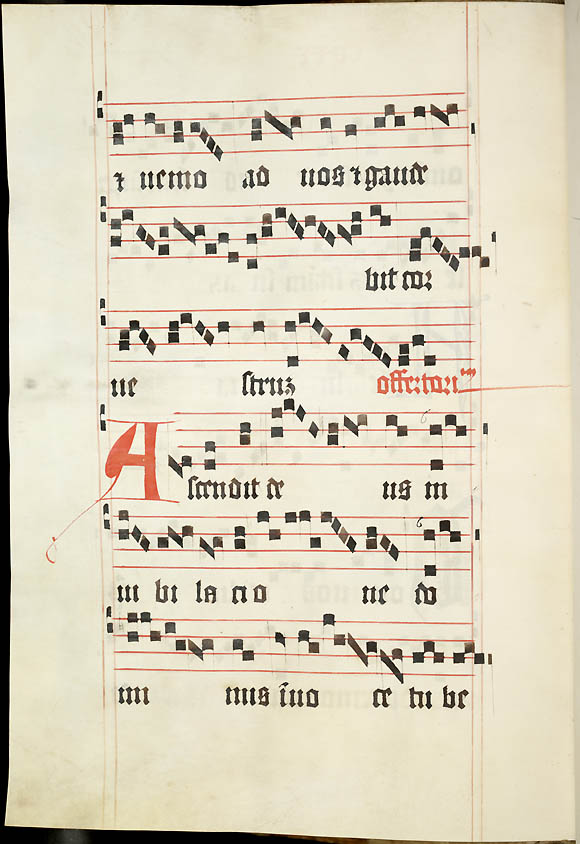 ⁊ uenio ad uos ⁊ gaude
bit cor
ue struz offertoriu
Ascendit de us in
iu bi la cio ne do
mi nus ī uo ce tu be